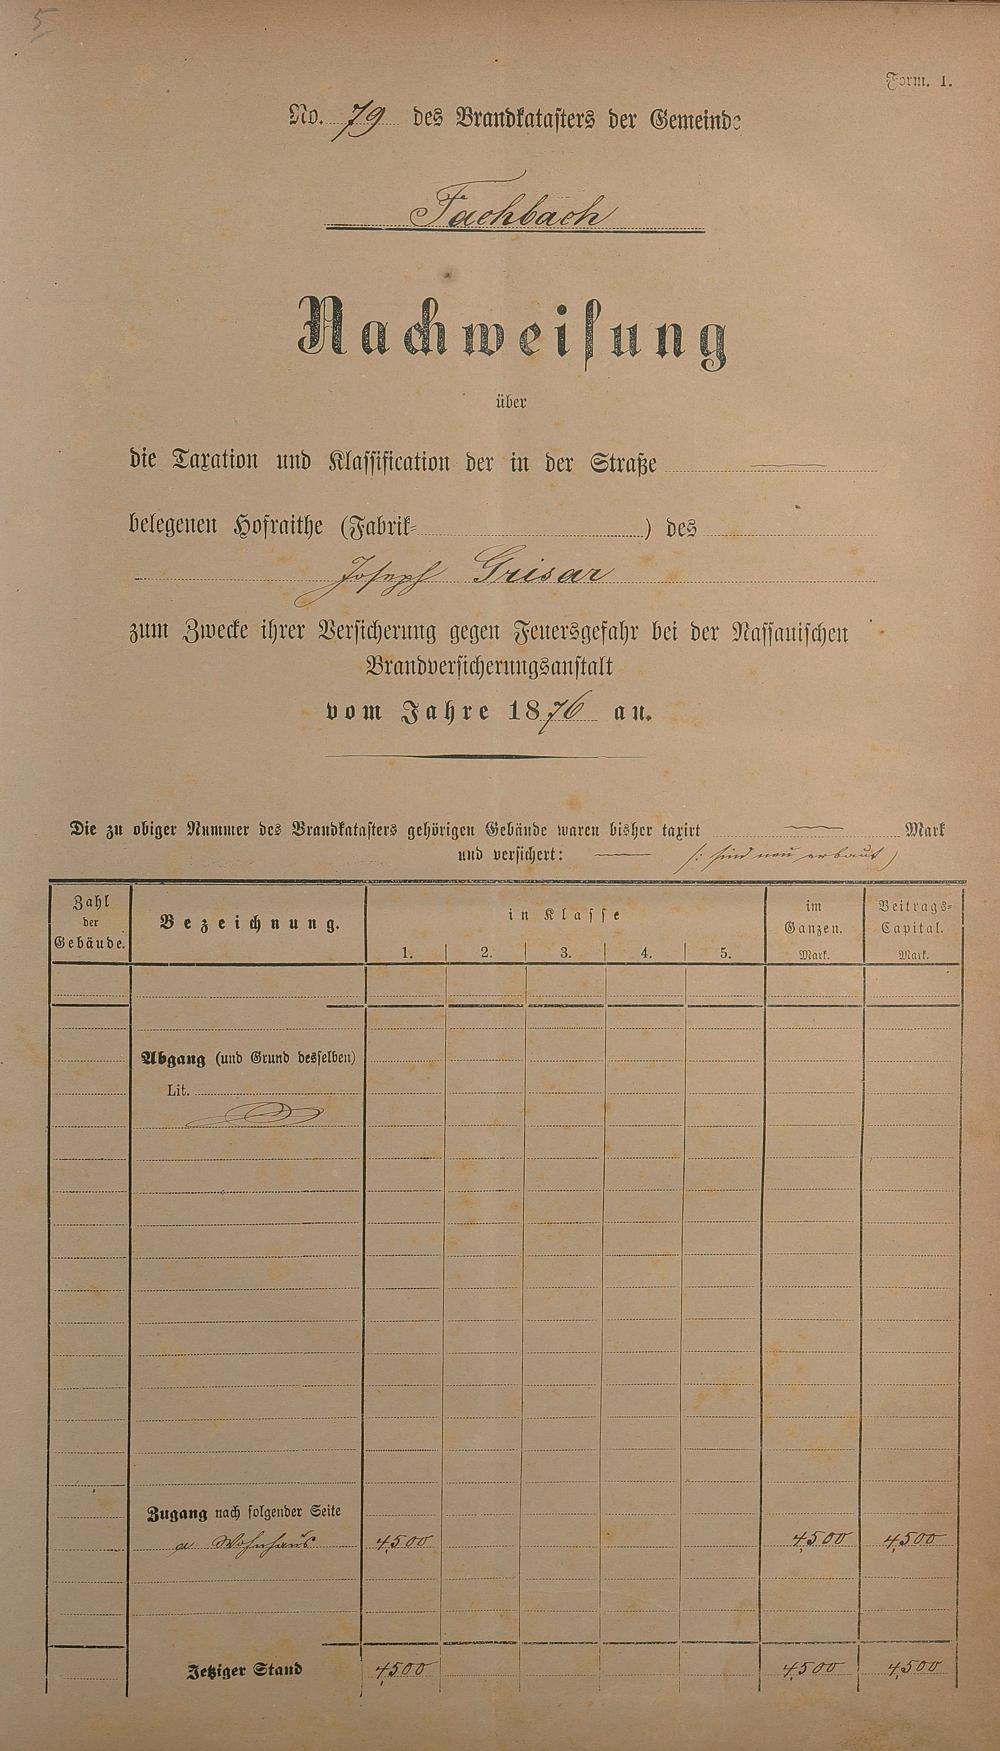 5
Form. 1.
No. 79 des Brandkatasters der Gemeinde
Fachbach
Nachweisung
über
die Taxation und Klassification der in der Straße
belegenen Hofraithe (Fabrik- ) des
Joseph Grisar
zum Zwecke ihrer Versicherung gegen Feuersgefahr bei der Nassauischen
Brandversicherungsanstalt
vom Jahre 1876 an.
Die zu obiger Nummer des Brandkatasters gehörigen Gebäude waren bisher taxirt Mark
und versichert: (: sind neu erbaut )
Zahl der Gebäude. Bezeichnung. in Klasse im Ganzen. Beitrags-Capital.
1. 2. 3. 4. 5. Mark. Mark.
Abgang (und Grund desselben)
Lit.
Zugang nach folgender Seite
a Wohnhaus 4500 4500 4500
Jetziger Stand 4500 4500 4500